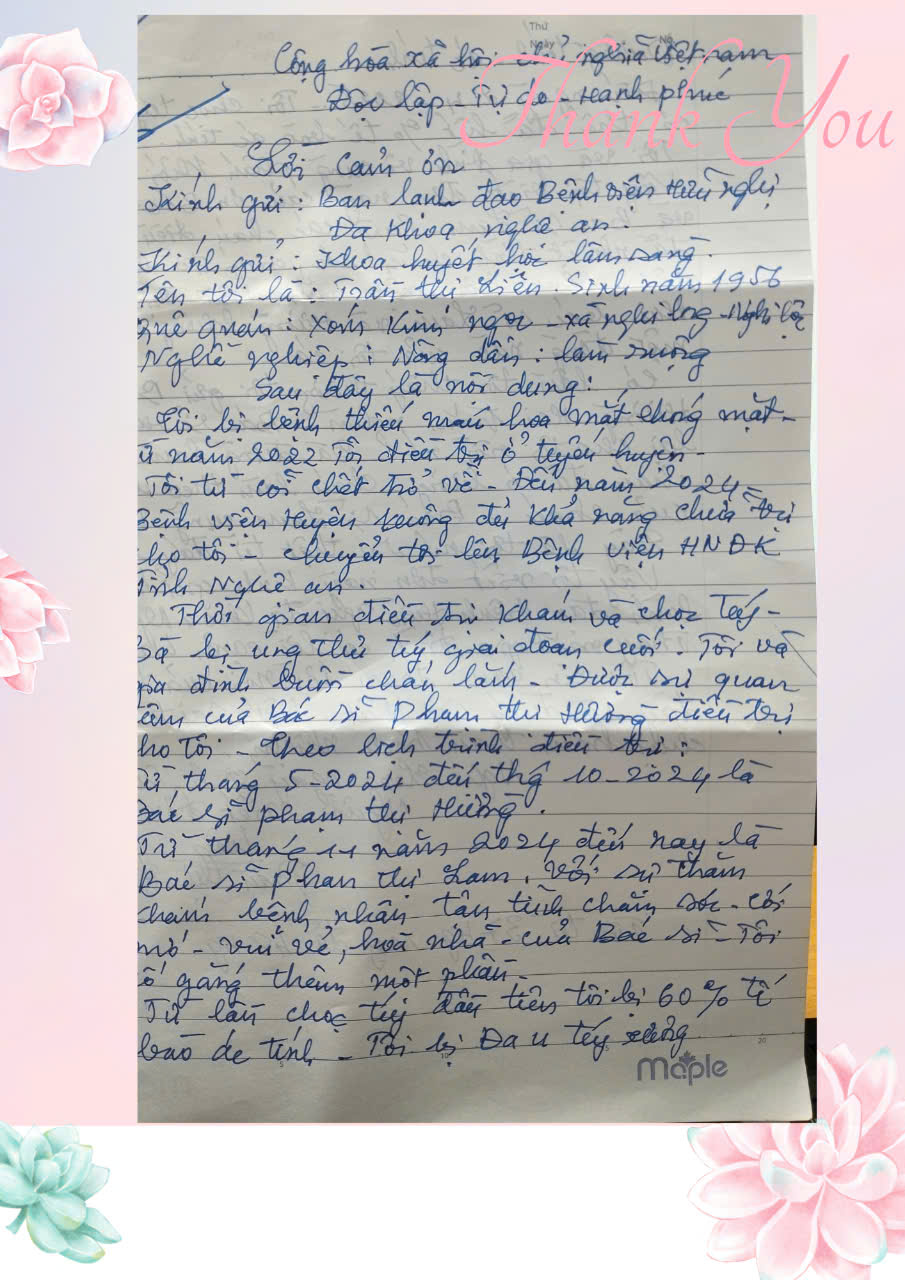 Thank You
Thứ
Ngày
No.
Cộng hòa xã hội chủ nghĩa Việt nam
Độc lập - Tự do - Hạnh phúc
Lời cảm ơn
Kính gửi : Ban lãnh đạo Bệnh viện Hữu nghị
Đa khoa nghệ an.
Kính gửi : Khoa huyết học lâm sàng.
Tên tôi là : Trần thị Liên. Sinh năm 1956
quê quán : Xóm Kim ngọc - xã nghi long - Nghi lộc
Nghề nghiệp : Nông dân : làm ruộng
Sau đây là nội dung:
Tôi bị bệnh thiếu máu hoa mắt chóng mặt -
từ năm 2022 Tôi điều trị ở tuyến huyện -
Tôi từ cõi chết trở về - Đến năm 2024 -
Bệnh viện Huyện không đủ khả năng chữa trị
cho tôi - chuyển tôi lên Bệnh viện HNĐK
Tỉnh Nghệ an.
Thời gian điều trị khám và chọc tủy -
bị ung thư tủy giai đoạn cuối. Tôi và
gia đình buồn chán lắm - Được sự quan
tâm của Bác sĩ Phạm thị Hường điều trị
cho tôi - theo lịch trình điều trị :
Từ tháng 5-2024 đến thg 10-2024 là
Bác sĩ phạm thị Hường.
Từ tháng 11 năm 2024 đến nay là
Bác sĩ Phan thị Lam. Với sự thăm
khám bệnh nhân tận tình chăm sóc - cởi
mở - vui vẻ, hoà nhã - của Bác sĩ - Tôi
cố gắng thêm một phần -
Từ lần chọc tủy đầu tiên tôi bị 60% tế
bào ác tính - Tôi bị Đa u tủy xương
Maple
5
10
20